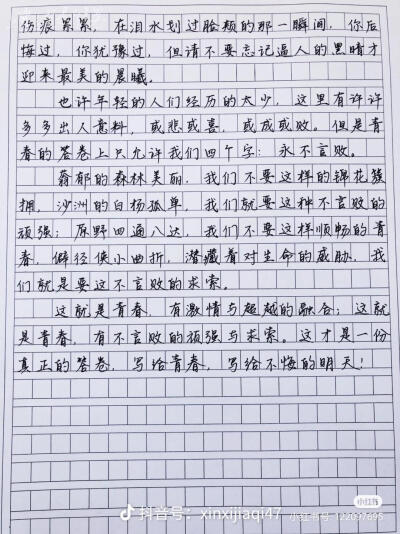 伤痕累累，在泪水划过脸颊的那一瞬间，你后
悔过，你犹豫过，但请不要忘记逼人的黑暗才
迎来最美的晨曦。
也许年轻的人们经历的太少，这里有许许
多多出人意料，或悲或喜，或成或败。但是青
春的答卷上只允许我们四个字：永不言败。
蓊郁的森林美丽，我们不要这样的锦花簇
拥，沙洲的白杨孤单，我们就要这种不言败的
顽强；原野四通八达，我们不要这样顺畅的青
春，僻径侠小曲折，潜藏着对生命的威胁，我
们就是要这不言败的求索。
这就是青春，有激情与超越的融合；这就
是青春，有不言败的顽强与求索。这才是一份
真正的答卷，写给青春，写给不悔的明天！
小红书
抖音号：xinxijiaqi47
小红书号：122097895